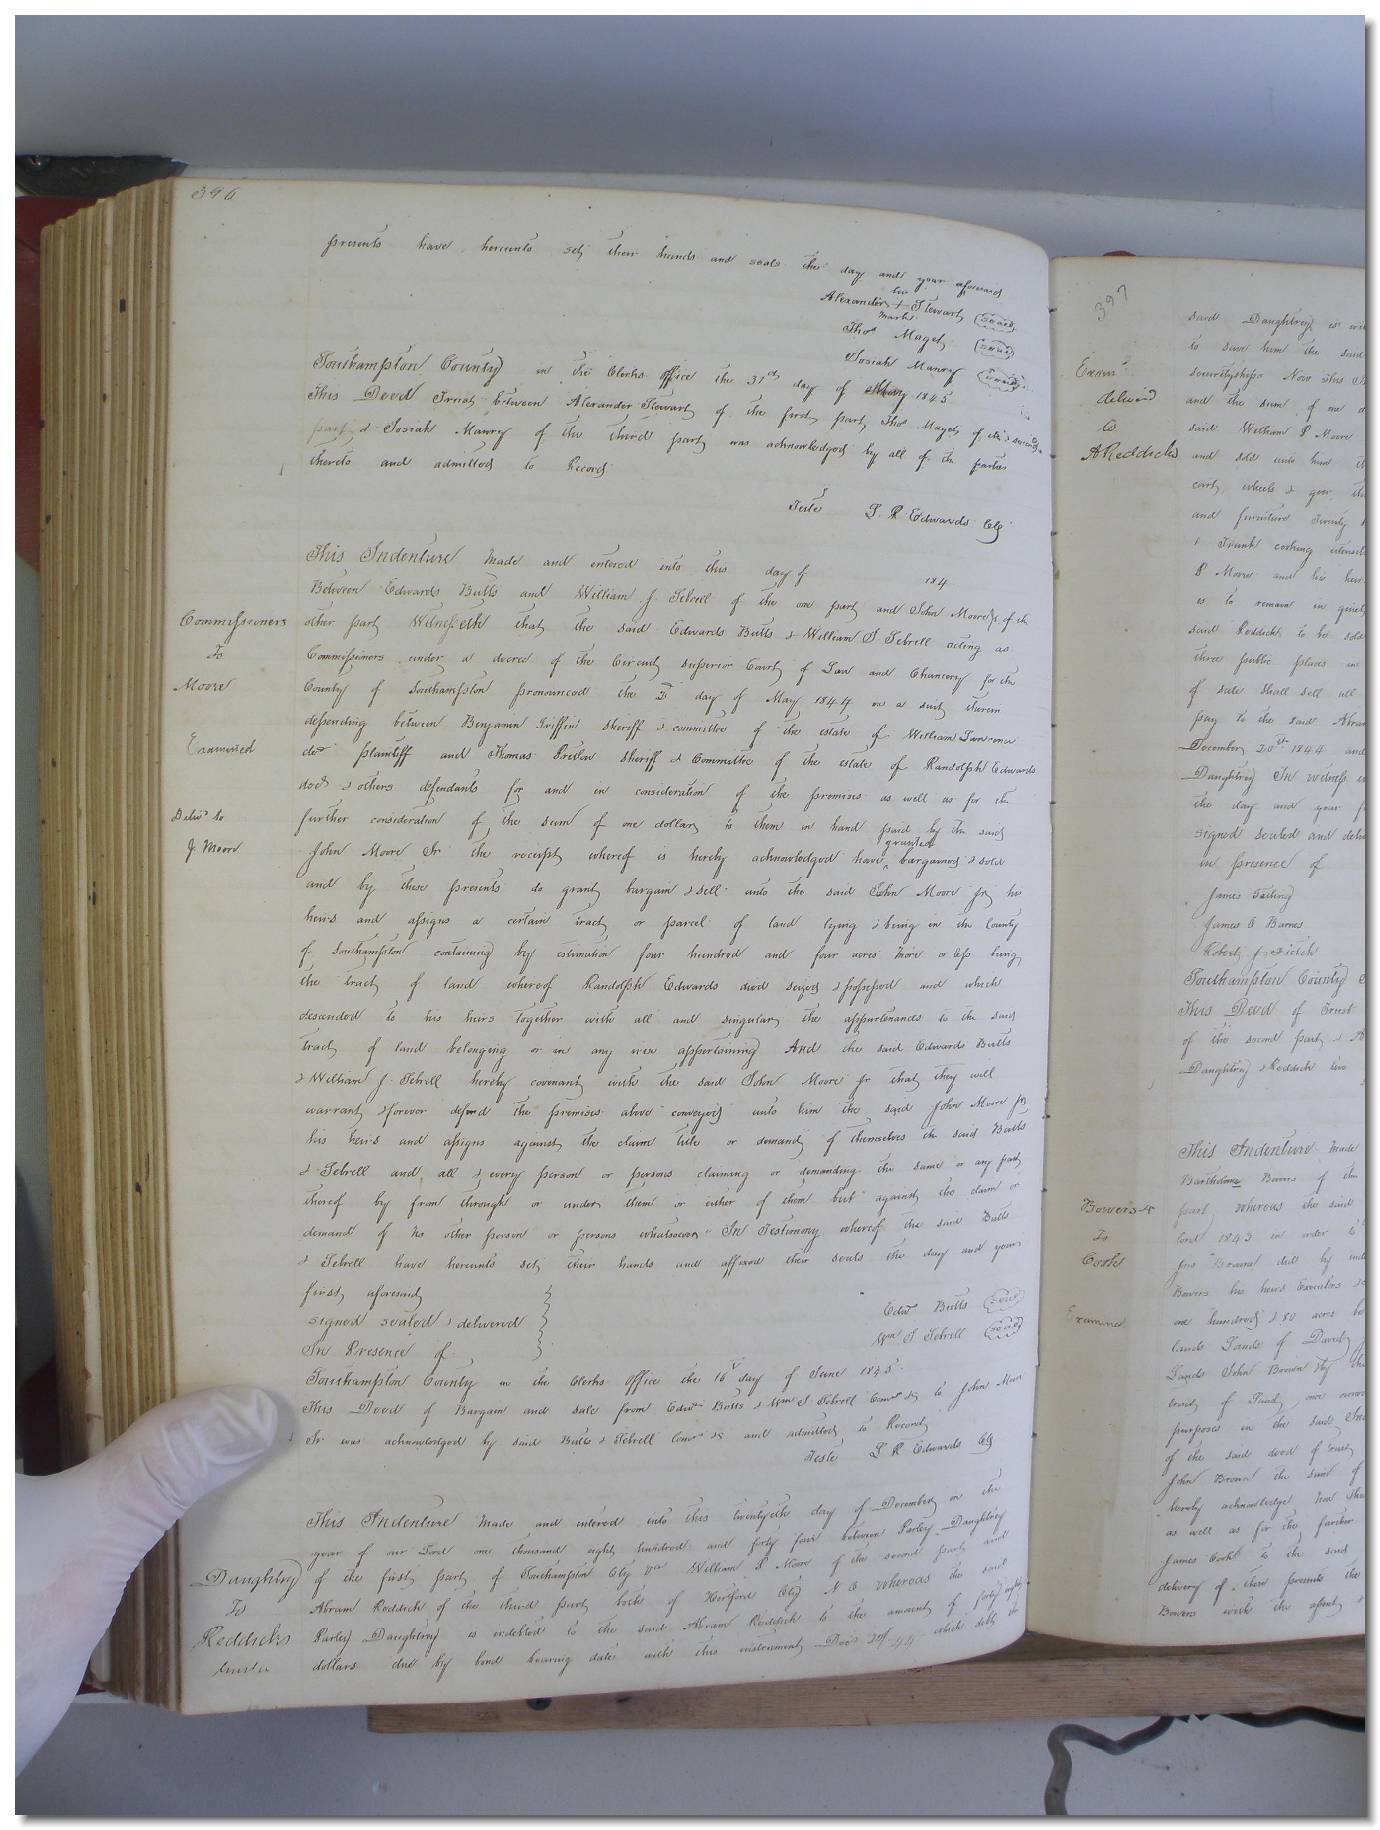 396
presents have hereunto set their hands and seals the day and year aforesaid
his
Alexander + Stewart (seal)
mark
Thos Maget (seal)
Josiah Manry (seal)
Southampton County in the Clerks office the 31st day of May 1845
This Deed Trust between Alexander Stewart of the first part, Thos Maget of the second
part & Josiah Manry of the third part was acknowledged by all of the parties
thereto and admitted to Record
Teste L R Edwards Clk
This Indenture Made and entered into this day of 184
Between Edwards Butts and William J. Sebrell of the one part and John Moore Jr of the
Commissioners
other part Witnesseth that the said Edwards Butts & William J Sebrell acting as
To
Commissioners under a decree of the Circuit superior Court of Law and Chancery for the
Moore
County of Southampton pronounced the day of May 1844 in a suit therein
depending between Benjamin Griffin sheriff & committee of the estate of William Lawrence
Examined
decd plaintiff and Thomas Pretlow sheriff & Committee of the estate of Randolph Edwards
decd & others defendants for and in consideration of the premises as well as for the
Delivd to
further consideration of the sum of one dollar to them in hand paid by the said
J Moore
John Moore Jr the receipt whereof is hereby acknowledged have granted bargained & sold
and by these presents do grant bargain & sell unto the said John Moore Jr his
heirs and assigns a certain tract or parcel of land lying & being in the County
of Southampton containing by estimation four hundred and four acres more or less being
the tract of land whereof Randolph Edwards died seized & possessed and which
descended to his heirs together with all and singular the appurtenances to the said
tract of land belonging or in any wise appertaining And the said Edwards Butts
& William J. Sebrell hereby covenant with the said John Moore Jr that they will
warrant & forever defend the premises above conveyed unto him the said John Moore Jr
his heirs and assigns against the claim title or demand of themselves the said Butts
& Sebrell and all & every person or persons claiming or demanding the same or any part
thereof by from through or under them or either of them but against the claim or
demand of no other person or persons whatsoever In Testimony whereof the said Butts
& Sebrell have hereunto set their hands and affixed their seals the day and year
first aforesaid
signed sealed & delivered
In Presence of
Edwd Butts (seal)
Wm J Sebrell (seal)
Southampton County in the Clerks office the 16 day of June 1845
This Deed of Bargain and sale from Edwd Butts & Wm J Sebrell Comrs &c to John Moore
Jr was acknowledged by said Butts & Sebrell Comrs &c and admitted to Record
Teste L R Edwards Clk
This Indenture Made and entered into this twentyeth day of December in the
year of our Lord one thousand eight hundred and forty four between Parley Daughtrey
Daughtrey
of the first part of Southampton Cty Va William P Moore of the second part and
To
Abram Reddick of the third part both of Hertford Cty N C Whereas the said
Reddicks
Parley Daughtrey is indebted to the said Abram Reddick to the amount of forty
trustee
dollars due by bond bearing date with this instrument which debt
397
said Daughtrey is
to save him the said
Examd
securityship Now this
delivered
and the sum of one
to
said William P Moore
A Reddicks
and sold unto him
cart, wheels & gear,
and furniture Twenty
1 Trunk cooking utensils
P Moore and his heirs
is to remain in quiet
said Reddick to be sold
three public places in
of sale shall sell all
pay to the said Abram
December 20th 1844 and
Daughtrey In witness
the day and year
signed sealed and
in presence of
James
James C Barnes
Robert
Southampton County
This Deed of Trust
of the second part &
Daughtrey & Reddick two
This Indenture Made
Barnes of the
Bowers
part Whereas the said
To
lord 1843 in order to
Cooke
Brown did by
Bowers his heirs Executors
Examined
one hundred & 80 acres
lands Lands of David
Lands John Brown
purposes in the said
of the said deed of trust
John Brown the said
hereby acknowledge Now
as well as for the further
James Cooke to the said
delivery of these presents the
Bowers with the assent